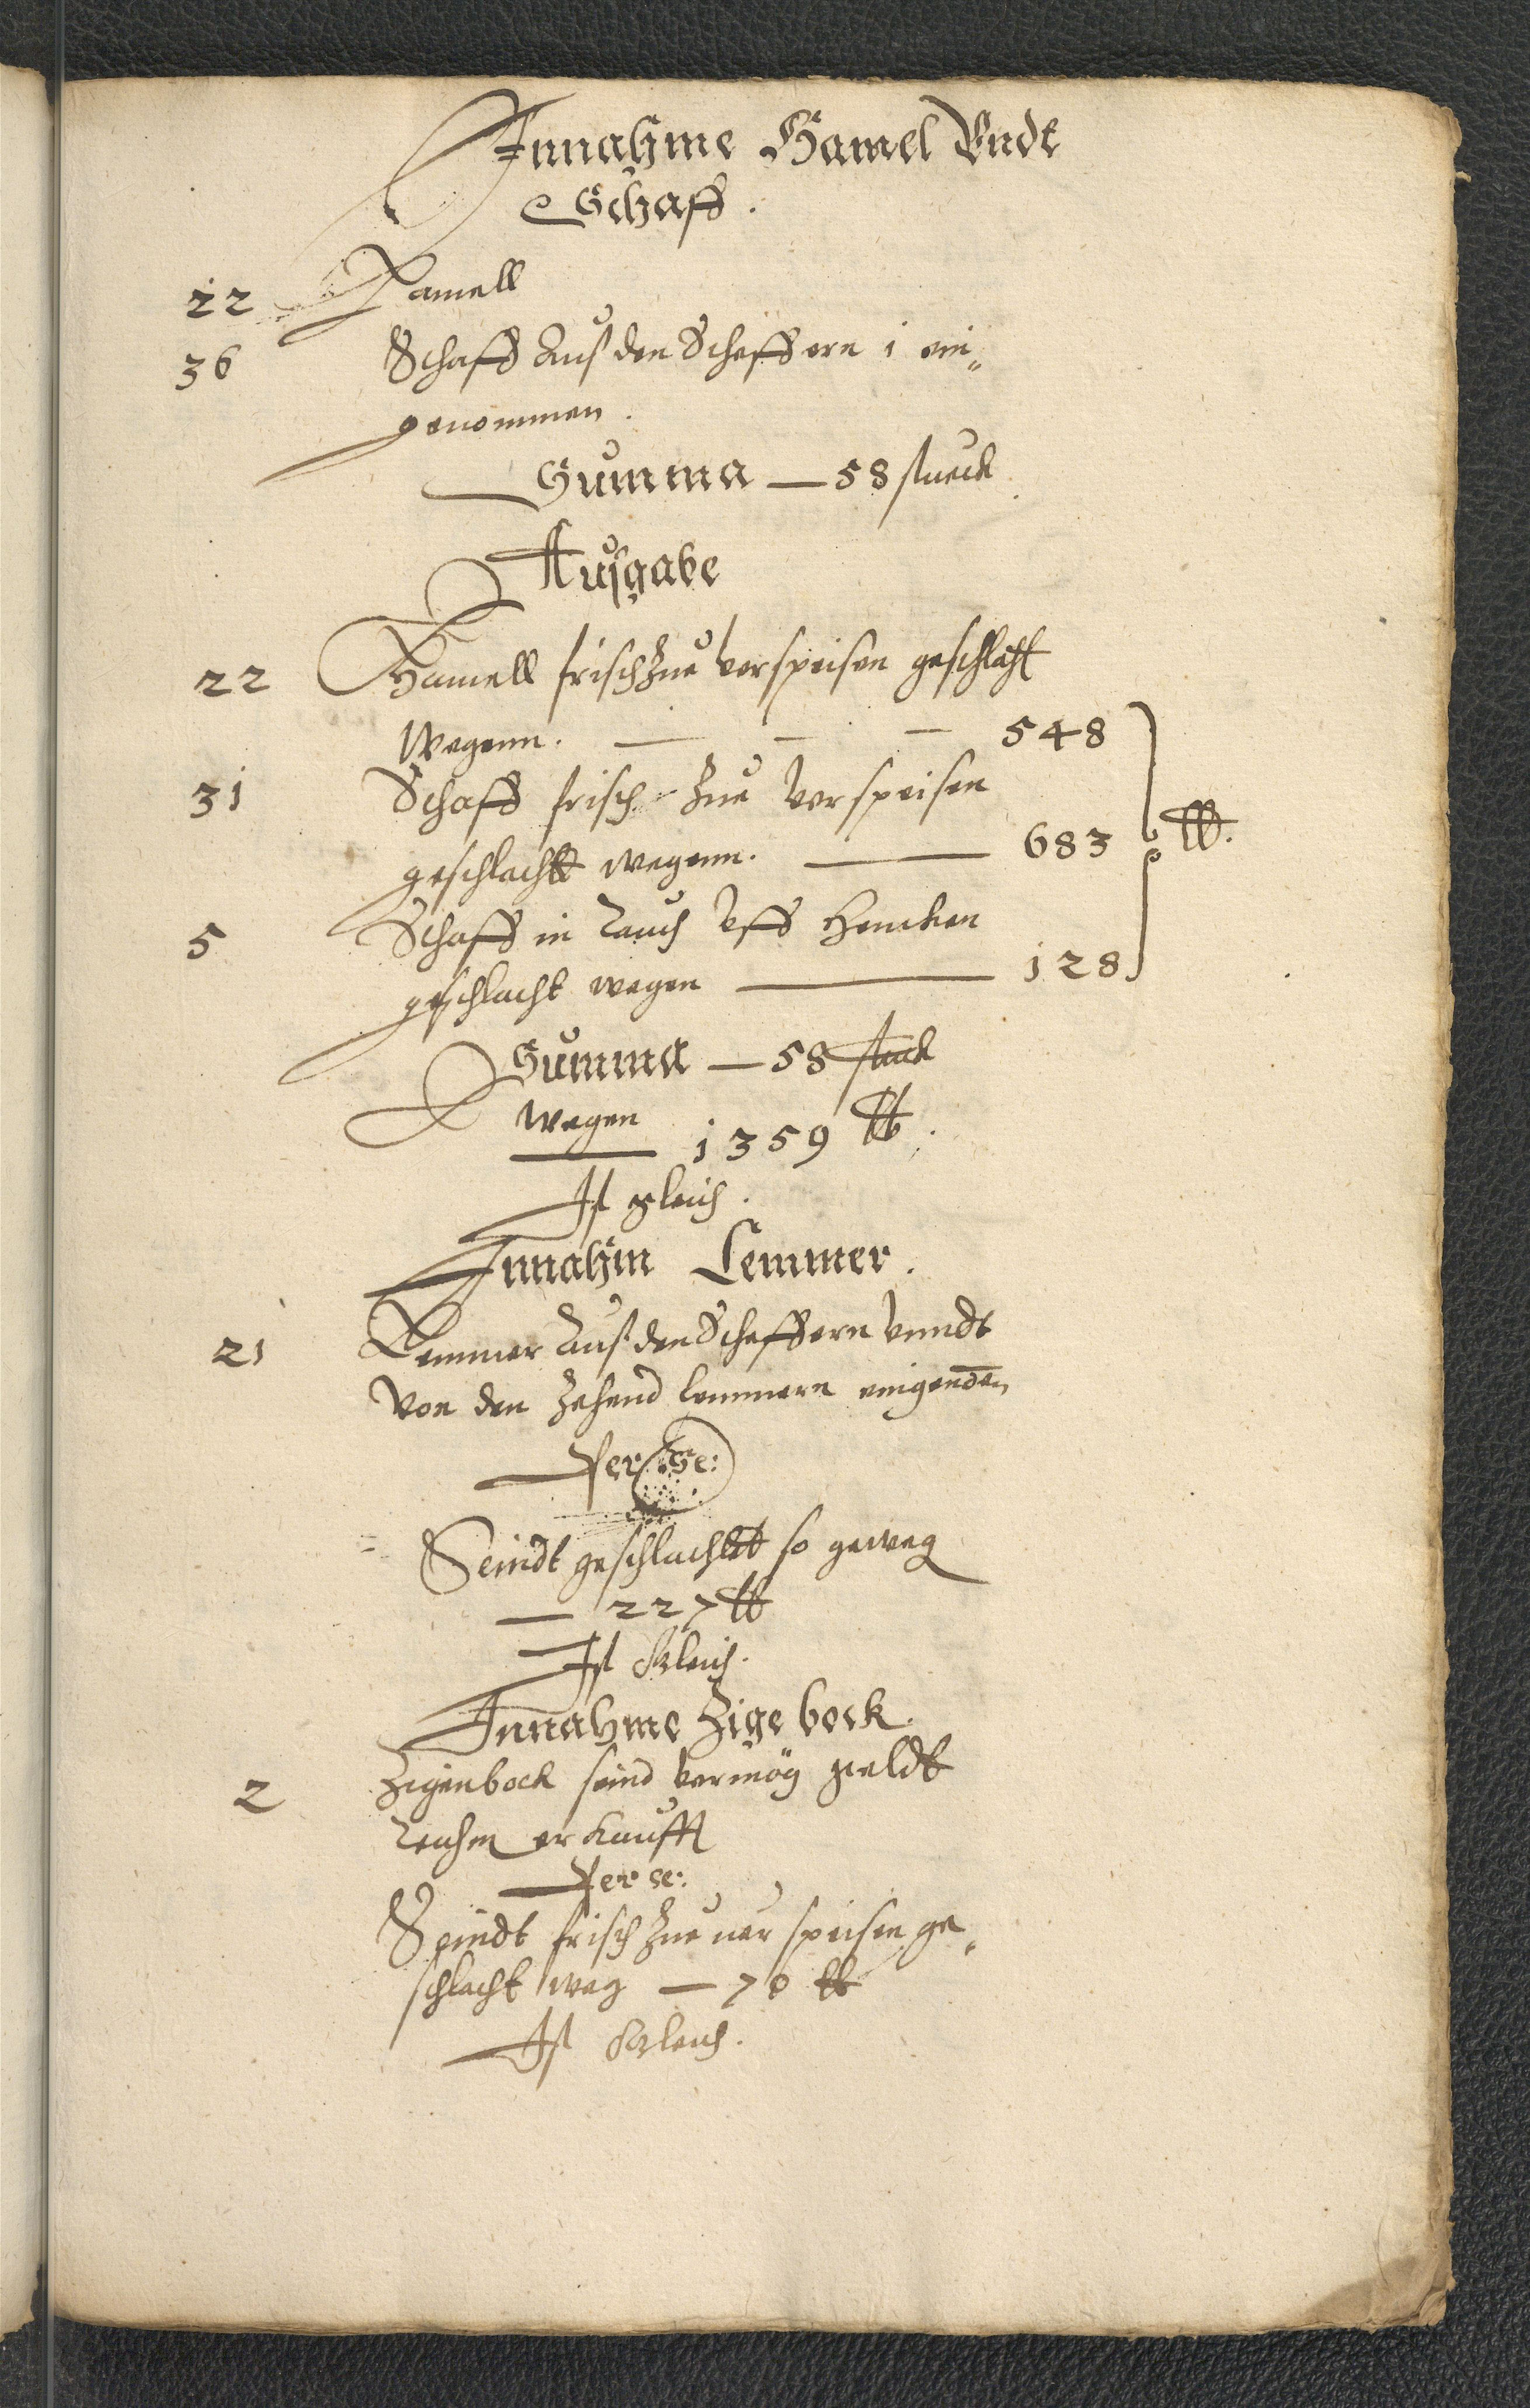 Innahme Hamel Vndt
Schaff.
22 Hamell
36 Schaff Auß den Scheffern i ein„
genommen.
Summa — 58 stueck
Außgabe
22 Hamell frisch zue verspeisen geschlacht
Wegenn. — — — 548
31 Schaff frisch zue verspeisen
geschlachtt wegenn. — 683 ℔.
5 Schaff in rauch vff hencken
geschlacht wegen — 128
Summa — 58 stuck
wegen 1359 ℔.
Ist gleich.
Innahm Lemmer.
21 Lemmer Auß den Scheffern vnndt
von den Zehend lemmern eingenōen
Per Se:
Seindt geschlachtt so geweg
— 227 ℔
Ist Gleich.
Innahme Zige bock.
2 Zigenbock seind vermög geldt
rechen erkaufft
Per se:
Seindt frisch zue uer speisen ge„
schlacht weg — 70 ℔
Ist Gleich.